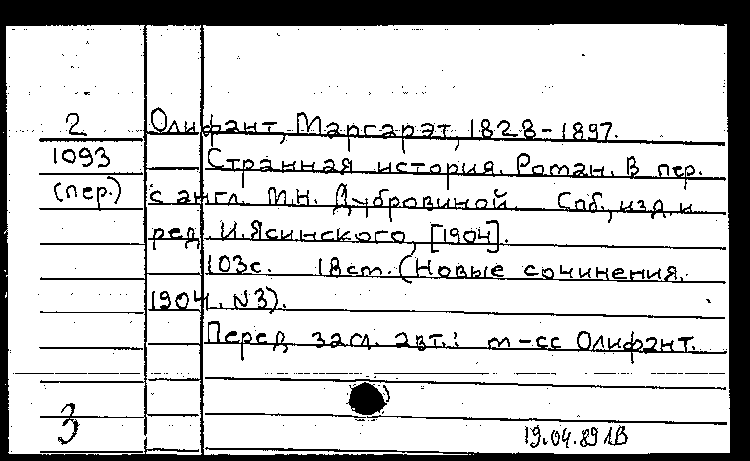 2 Олифант, Маргарэт, 1828-1897.
1093 Странная история. Роман. В пер.
(пер.) с англ. М.Н. Дубровиной. Спб., изд. и
ред. И. Ясинского, [1904].
103с. 18см. (Новые сочинения.
1904. №3).
Перед загл. авт.: м-сс Олифант.
3
19.04.89 ЛВ